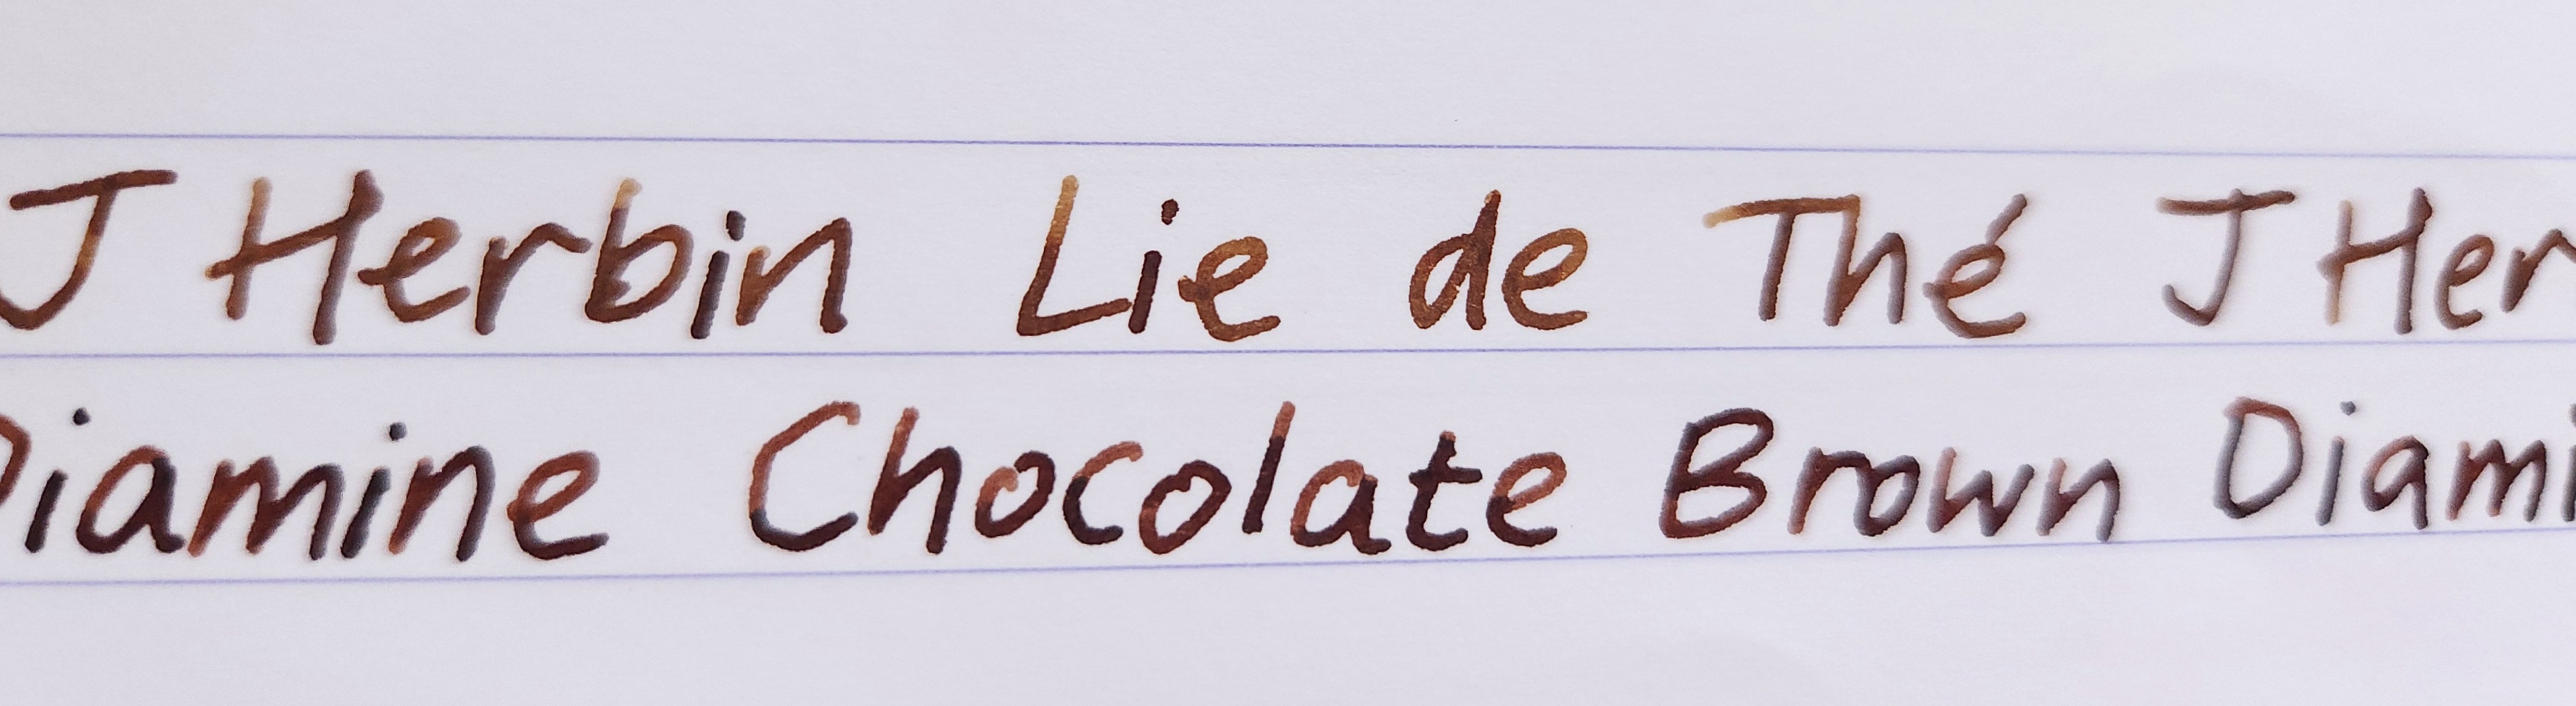 J Herbin Lie de Thé J Her
Diamine Chocolate Brown Diami